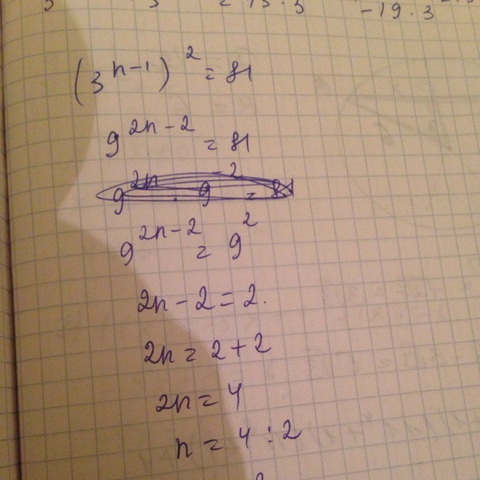 (3^{n-1})^2 = 81
9^{2n-2} = 81
9^{2n-2} = 9^2
2n - 2 = 2.
2n = 2 + 2
2n = 4
n = 4 : 2